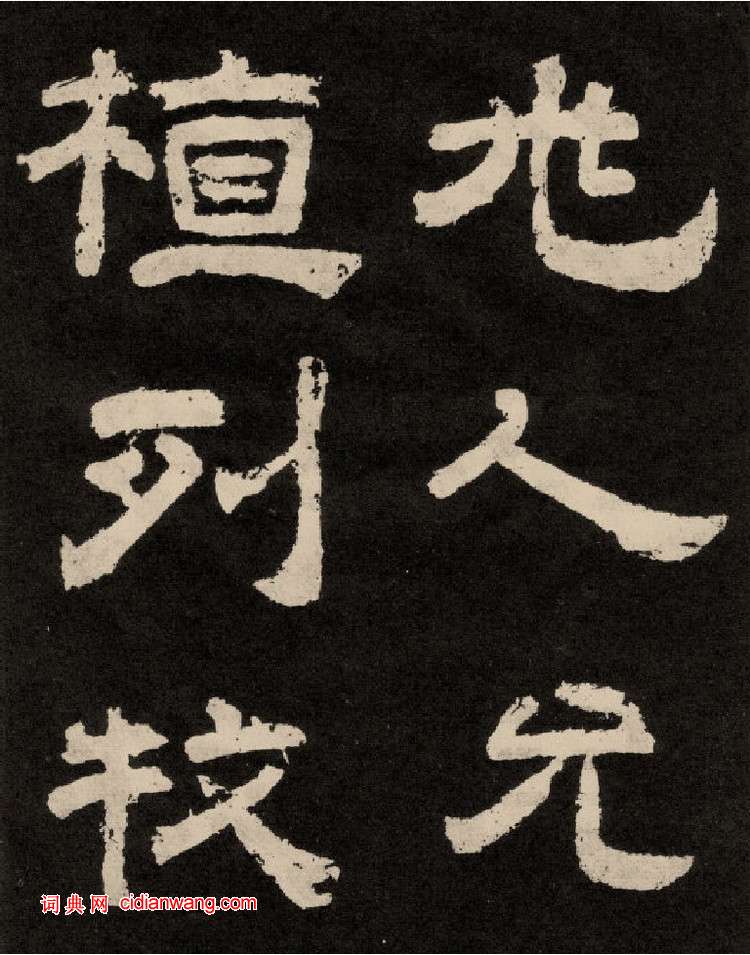 人允
桓列牧
词典网 cidianwang.com